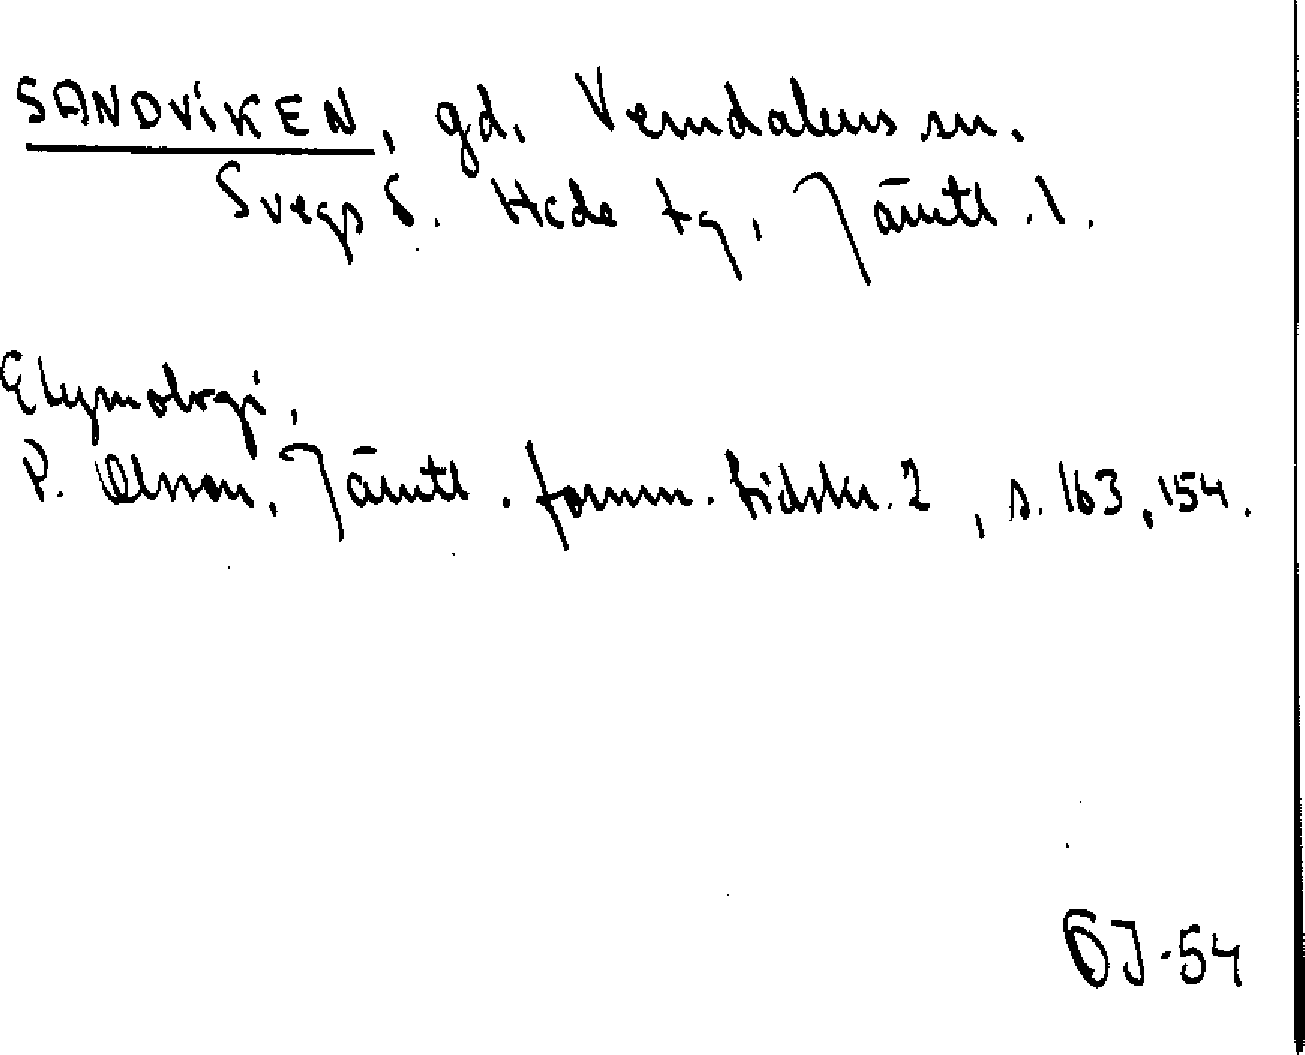 SANDVIKEN, gd. Vemdalens sn.
Svegs s. Hede tg, Jämtl. l.
Etymologi.
P. Olsson, Jämtl. fornm. tidskr. 2, s. 163, 154.
ÖJ-54